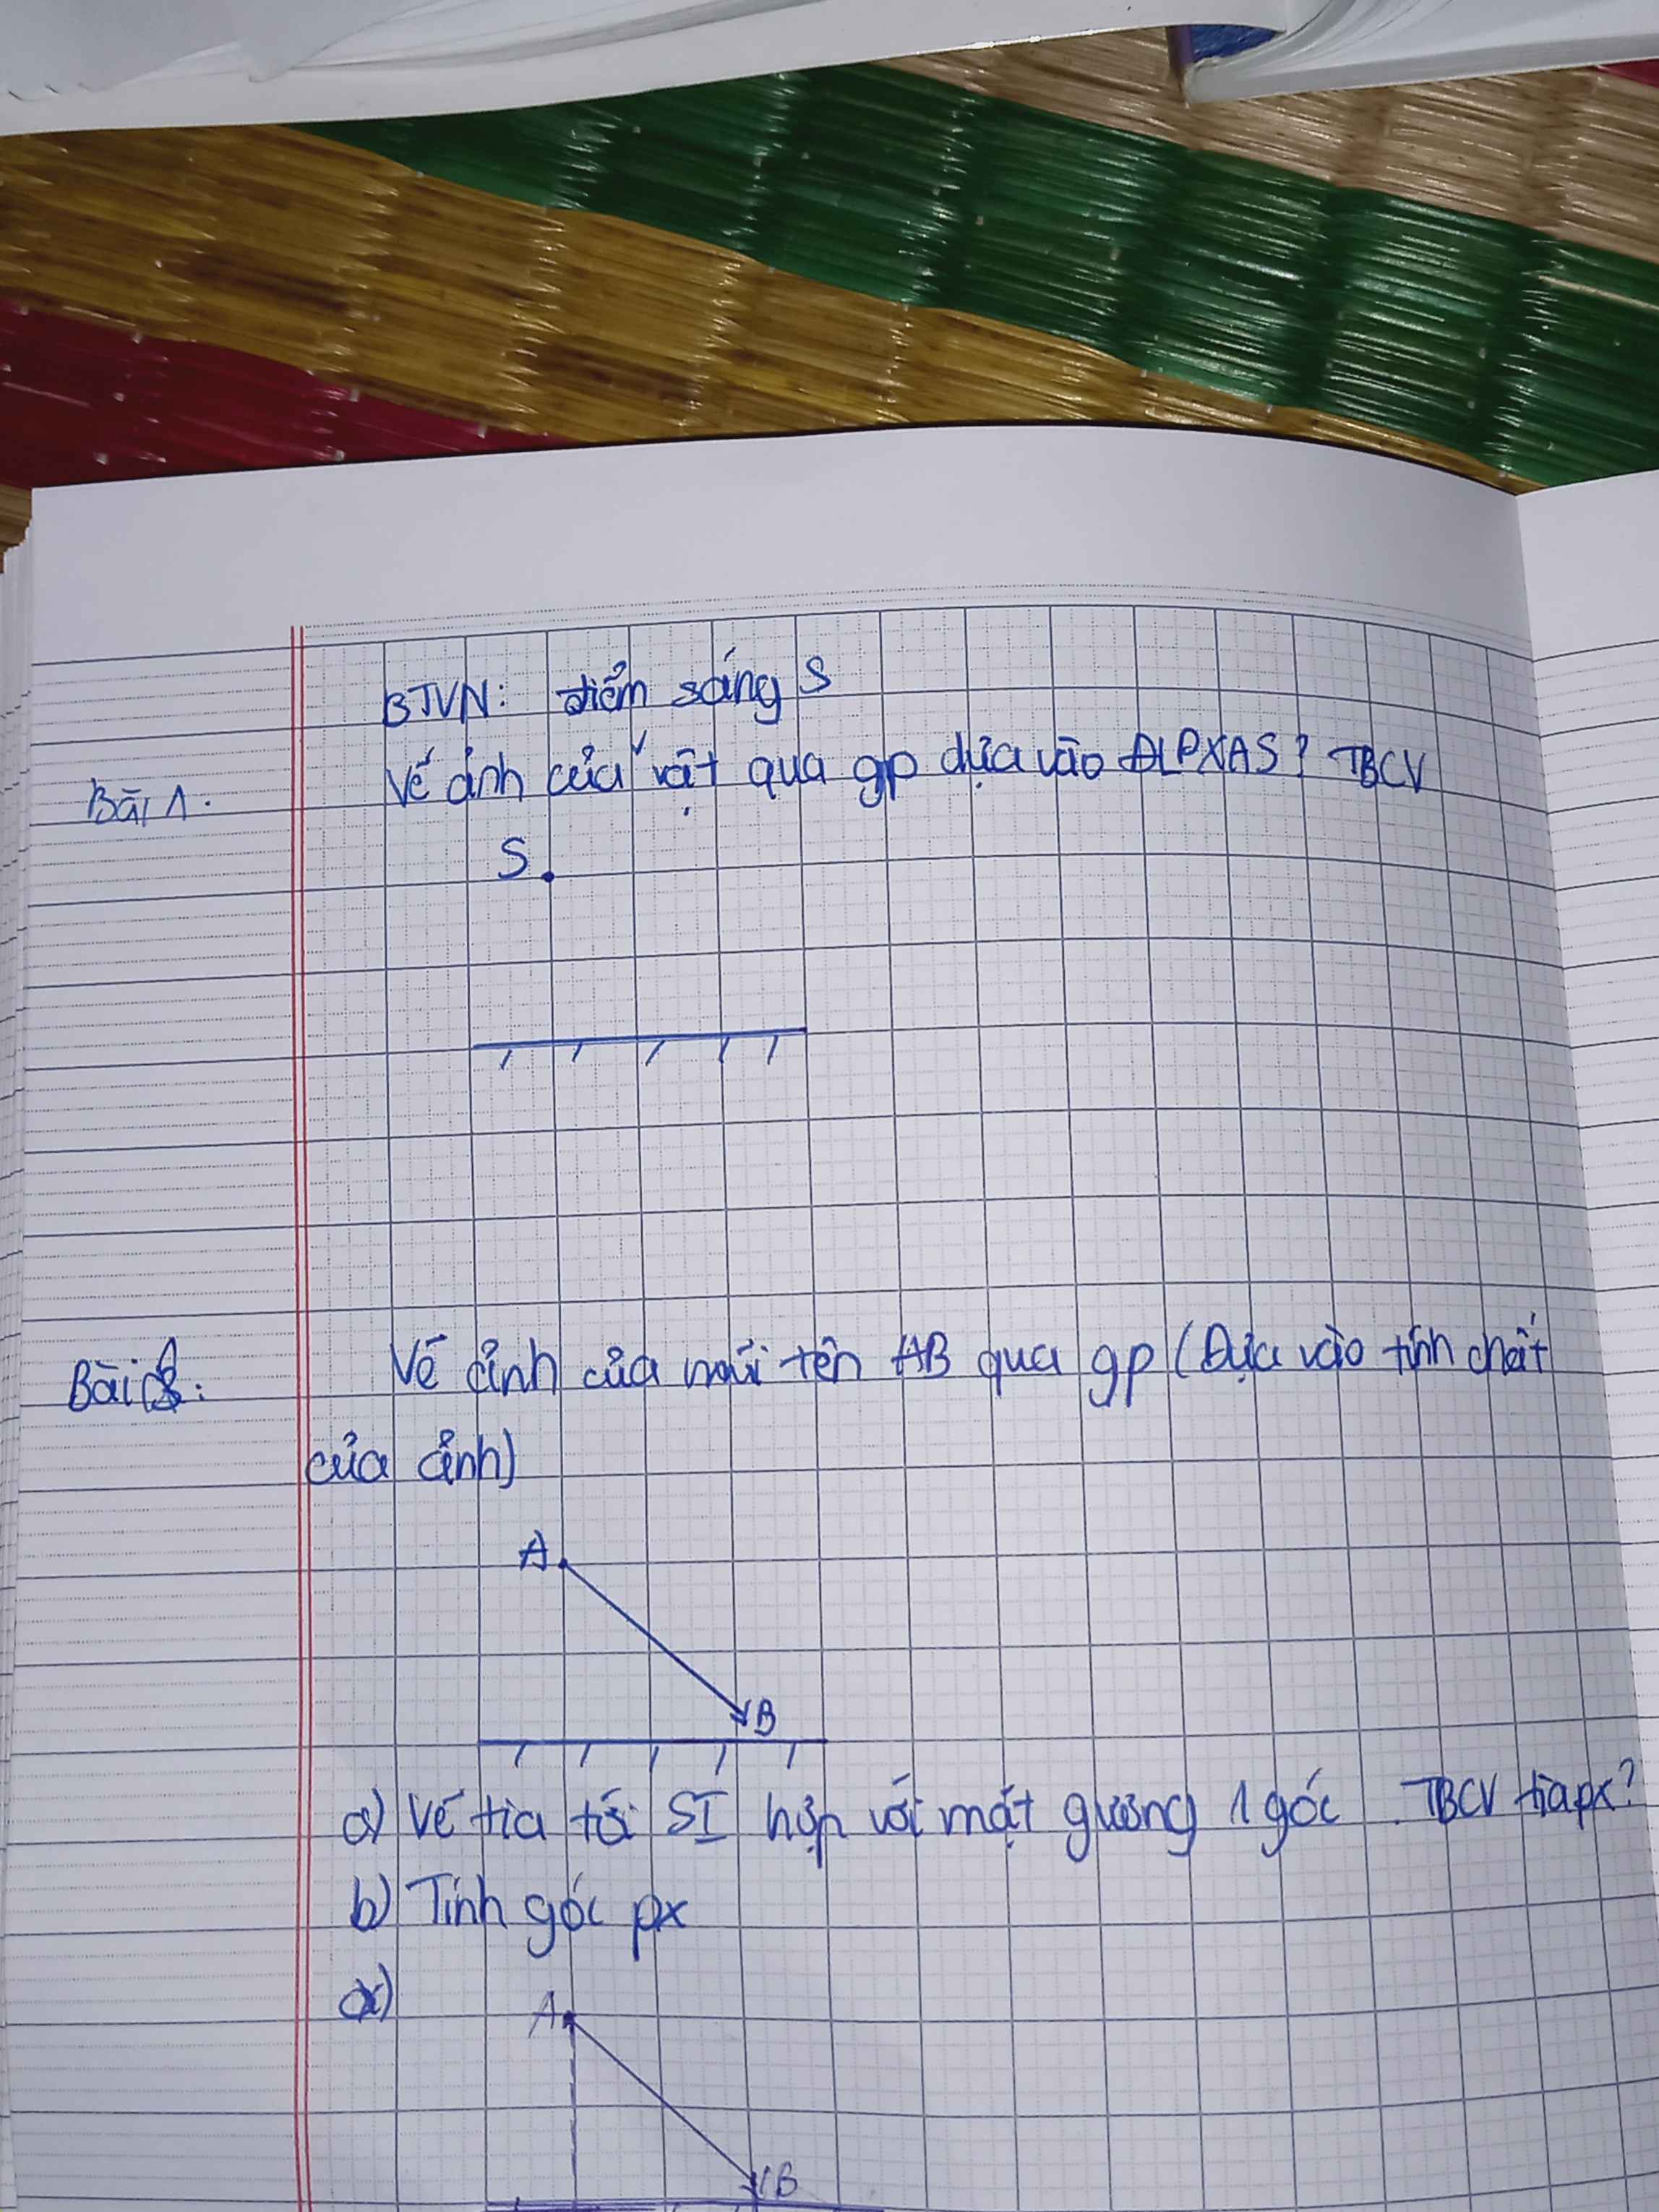 BTVN: điểm sáng S
Bài 1: Vẽ ảnh của vật qua gp dựa vào ĐLPXAS? TBCV
S
Bài : Vẽ ảnh của mũi tên AB qua gp (Dựa vào tính chất
của ảnh)
A
B
a) Vẽ tia tới SI hợp với mặt gương 1 góc . TBCV tia px?
b) Tính góc px
a)
A
B